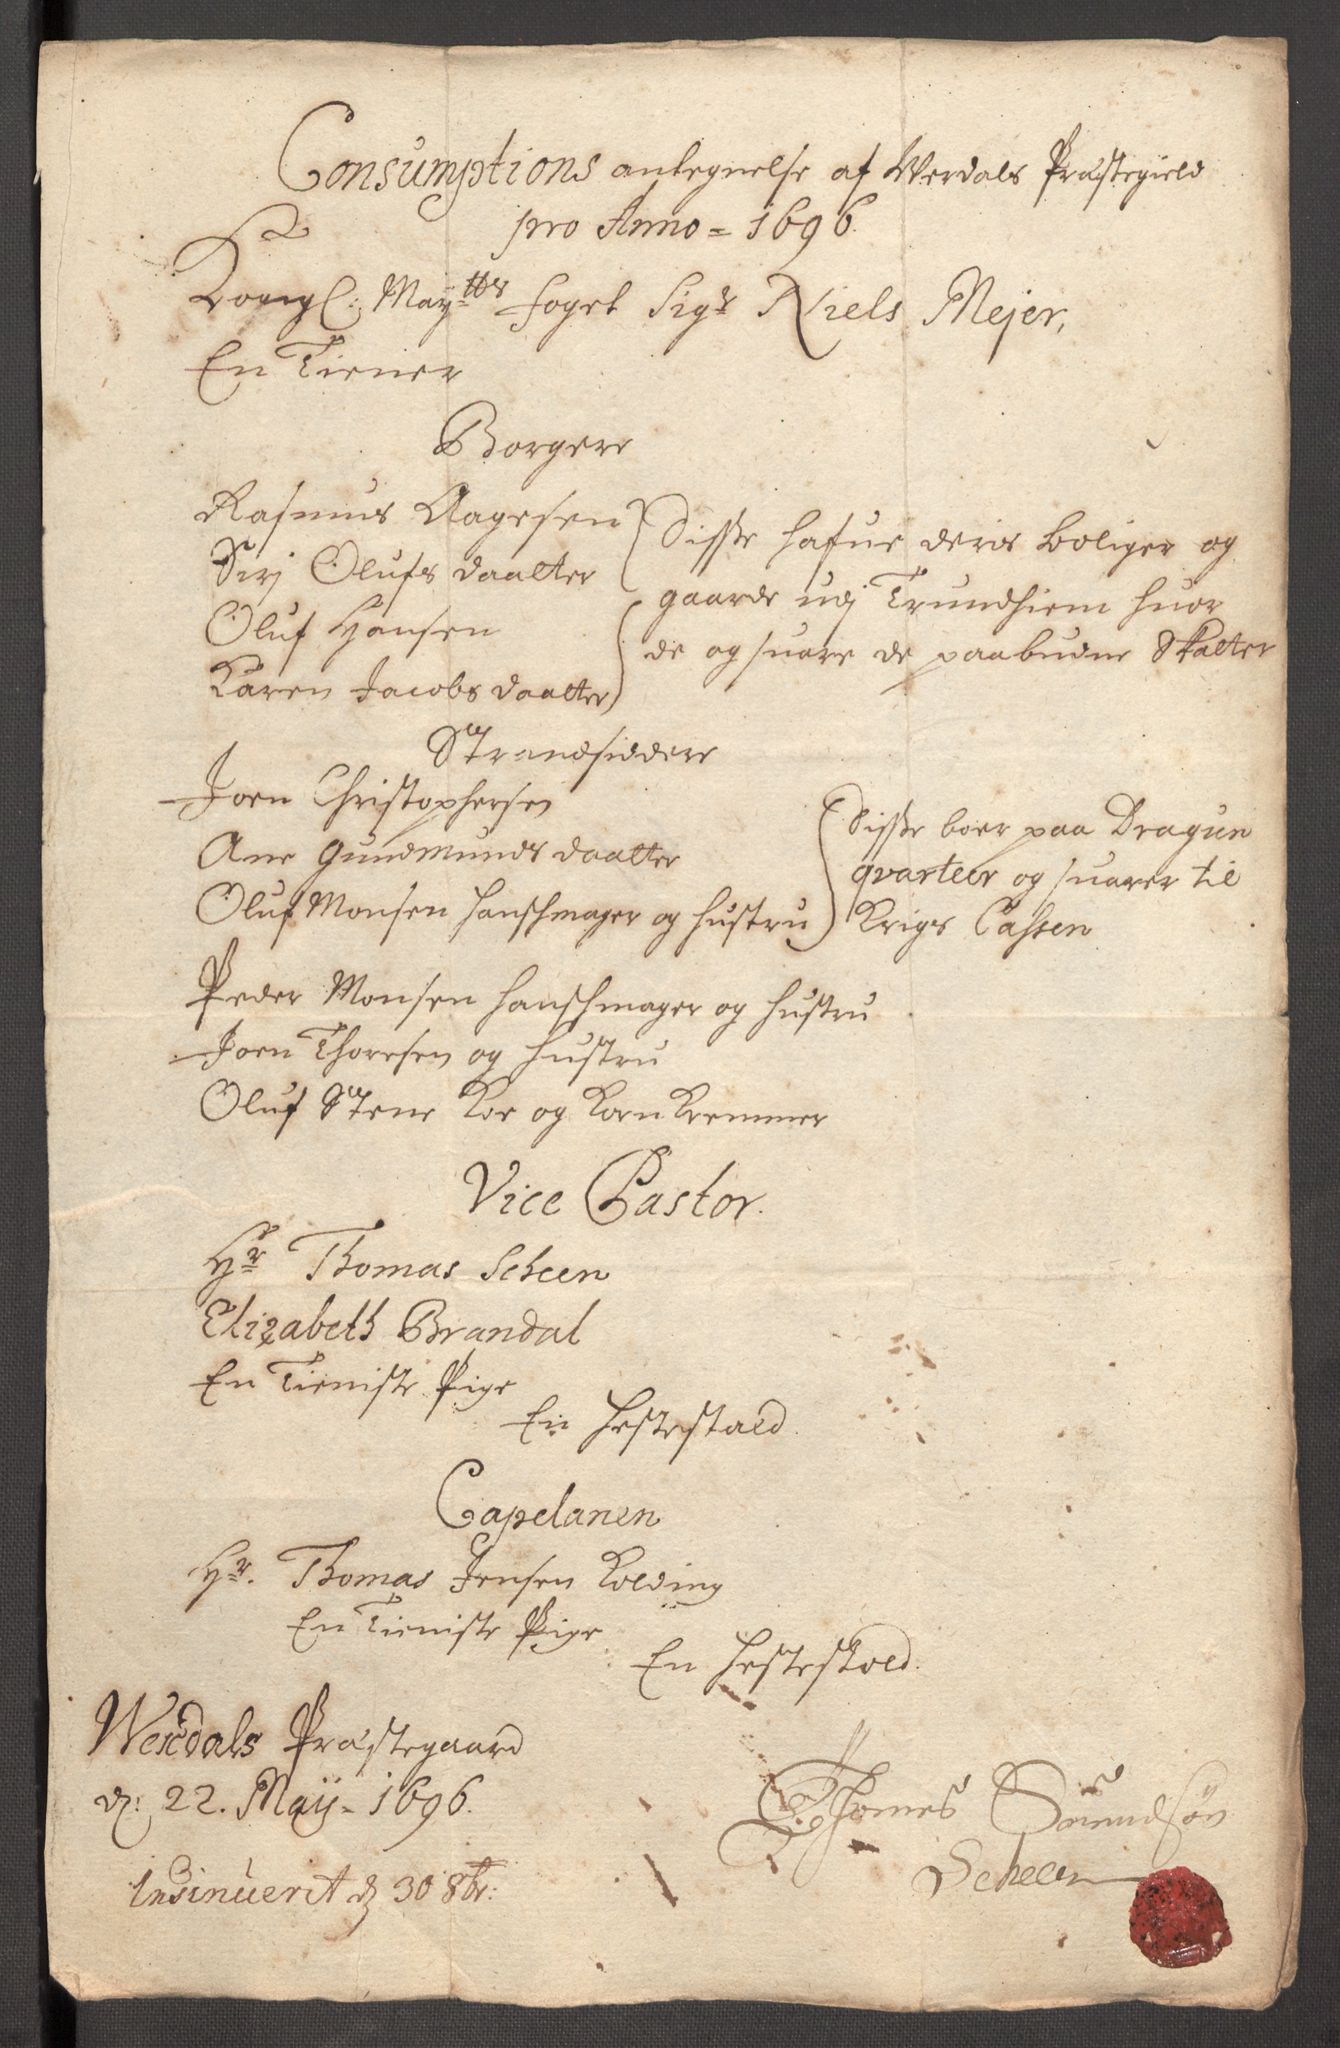 Consumptions antegnelse af Werdals Præstegield
pro Anno = 1696.
Kongl: Maÿtts foget Sigr Niels Mejer,
En Tiener
Borgere
Rasmus Aagesen
Sirj Olufs daatter
Oluf Hansen
Karen Jacobs daatter
Disse hafue deris boliger og
gaarde udj Trundhiem huor
de og suare de paabudne Skatter
Strandsiddere
Joen Christophersen
Ane Gundmunds daatter
Oluf Monsen Hanschmager og hustru
Disse boer paa Dragun
qvarteer og suarer til
Krigs Cassen
Peder Monsen Hanschmager og hustru
Joen Thoresen og hustru
Oluf Stene Koe og Korn Kremmer
Vice Pastor.
Hr Thomas Scheen
Elizabeth Brandal
En Tieniste Pige
En Hestestald.
Capelanen
Hr. Thomas Jensen Kolding
En Tieniste Pige
En Hestestald.
Werdals Præstegaard
d: 22. Maÿ - 1696.
Thomes
Scheen
Insinuerit d 30 8br: